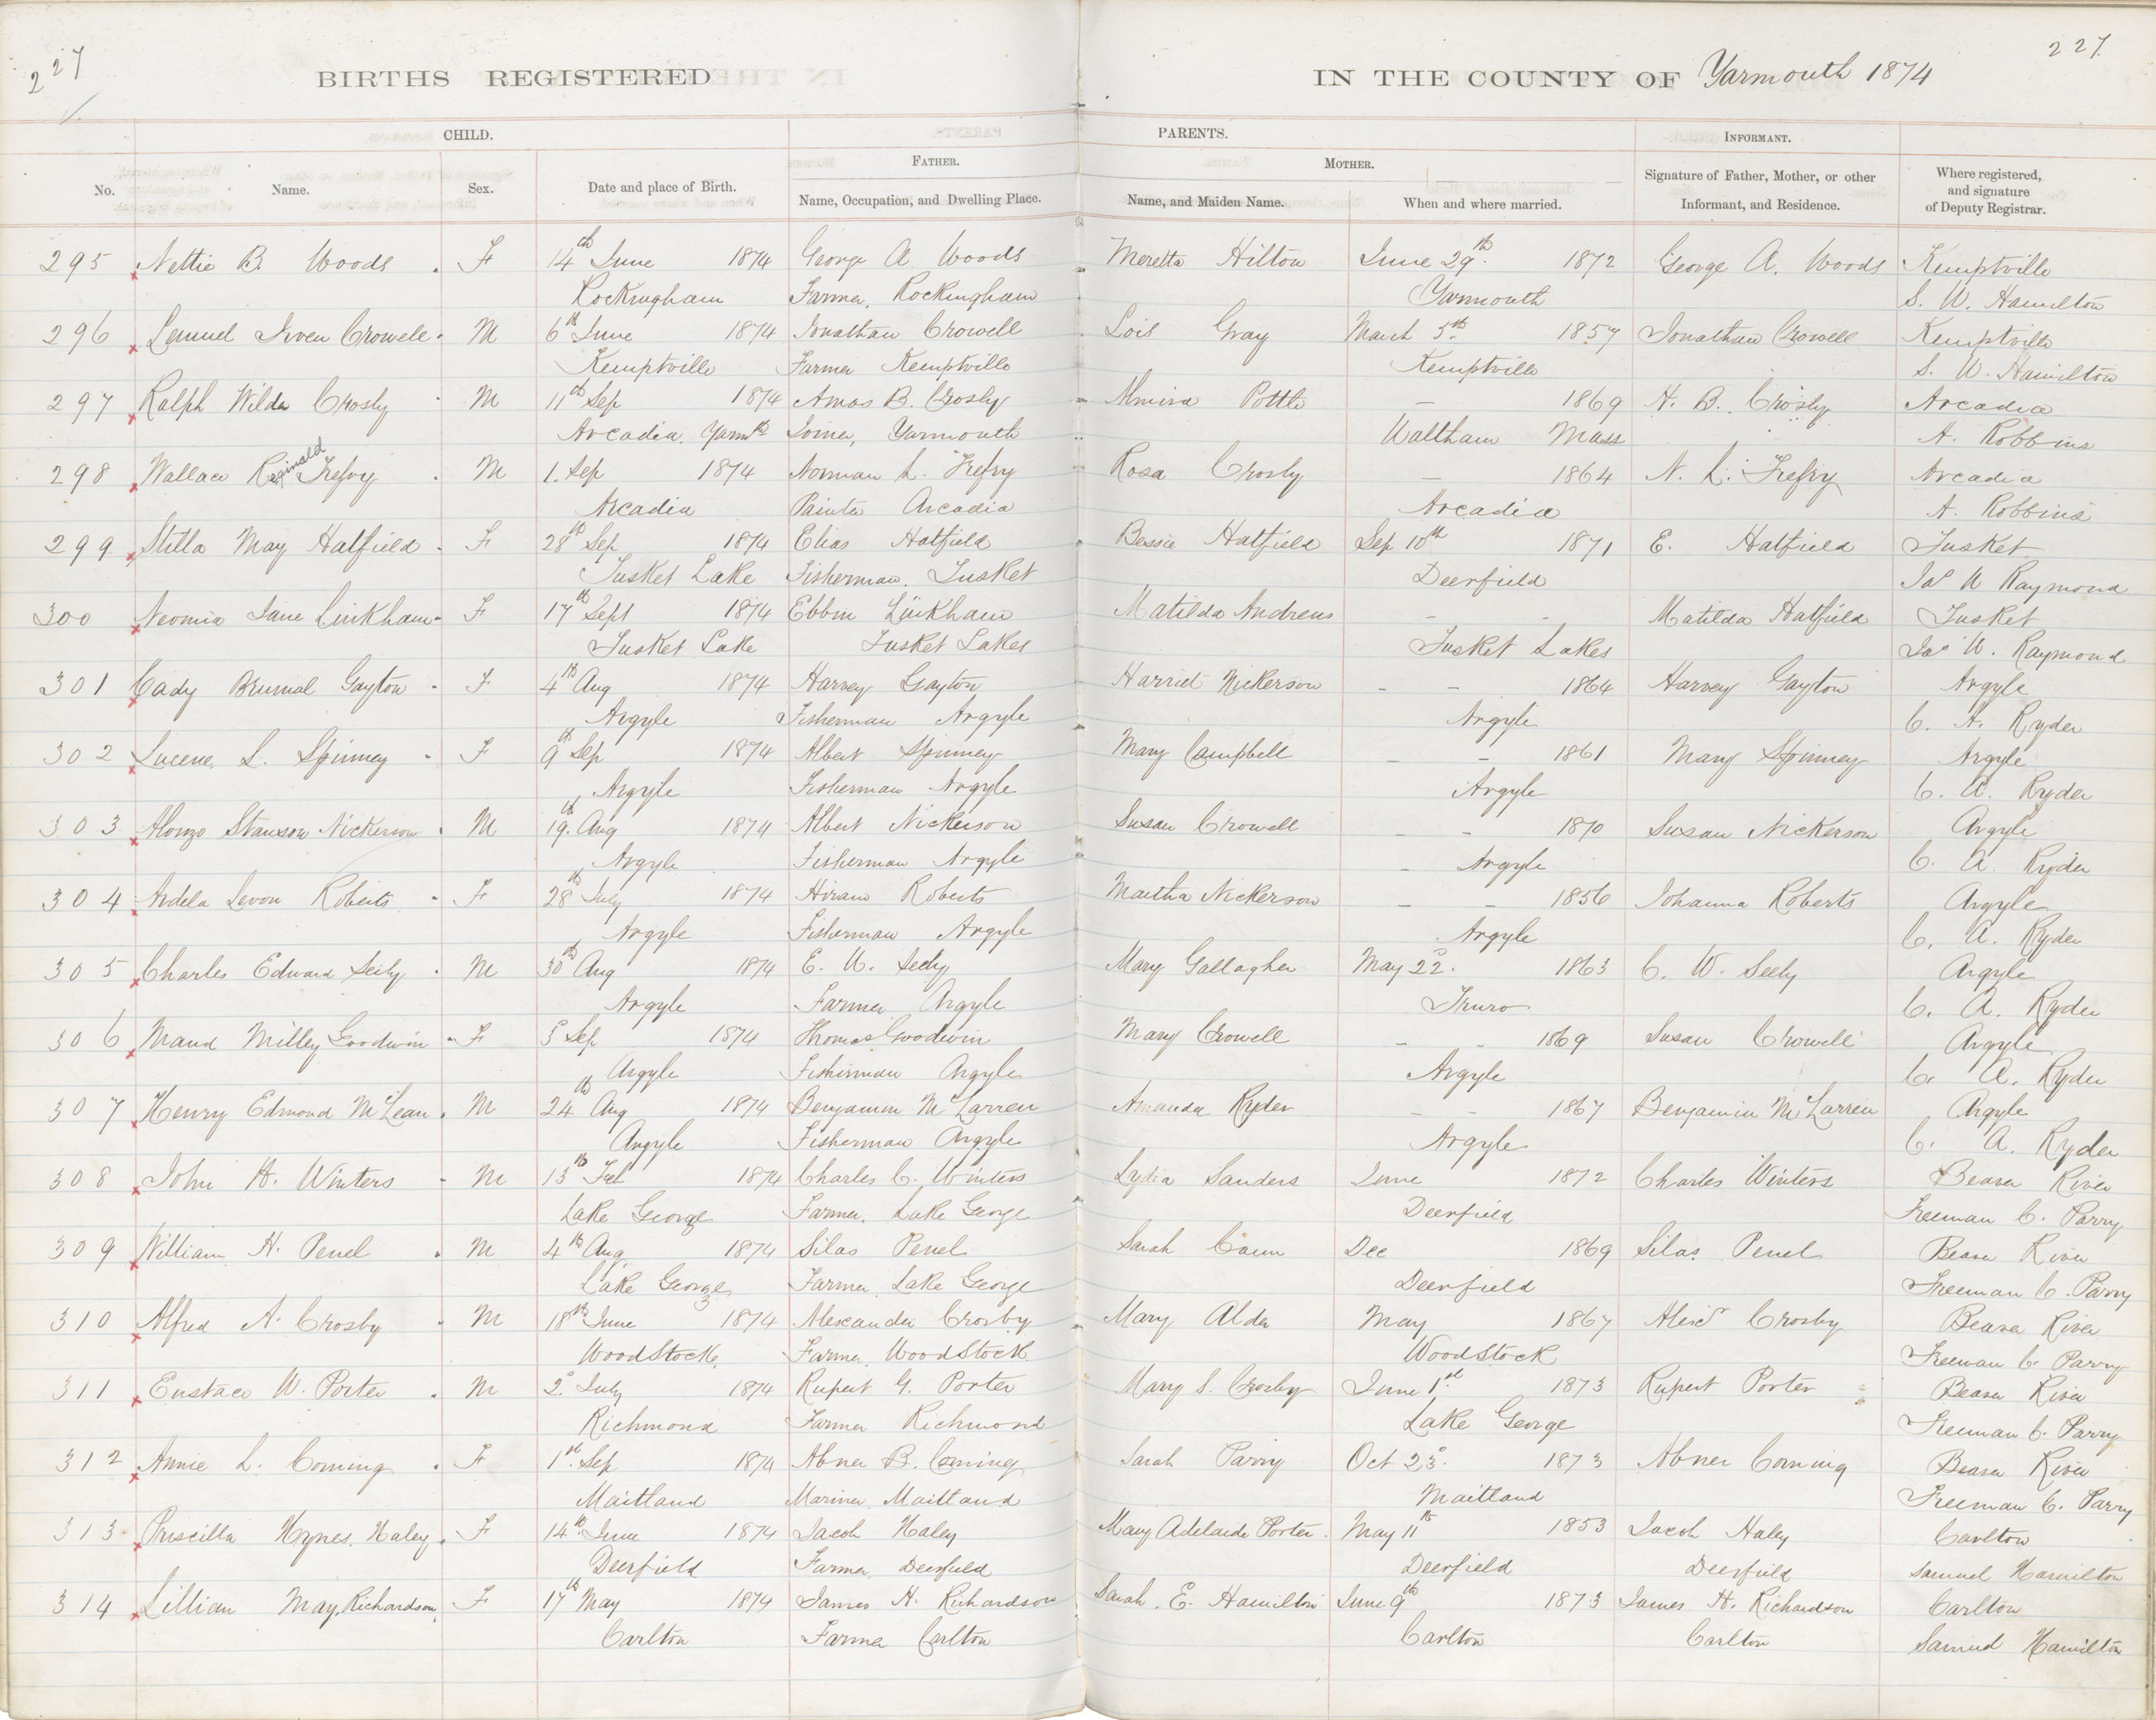 227 227
BIRTHS REGISTERED IN THE COUNTY OF Yarmouth 1874
CHILD. PARENTS. INFORMANT.
FATHER. MOTHER.
No. Name. Sex. Date and place of Birth. Name, Occupation, and Dwelling Place. Name, and Maiden Name. When and where married. Signature of Father, Mother, or other Informant, and Residence. Where registered, and signature of Deputy Registrar.
295 Nettie B. Woods F 14th June 1874 George A Woods Meretta Hilton June 29th 1872 George A. Woods Kemptville
Rockingham Farmer, Rockingham Yarmouth S. W. Hamilton
296 Lemuel Crowell M 6th June 1874 Jonathan Crowell Lois Gray March 5th 1857 Jonathan Crowell Kemptville
Kemptville Farmer Kemptville Kemptville S. W. Hamilton
297 Ralph Wilder Crosby M 11th Sep 1874 Amos B. Crosby Almira Pottle — 1869 A. B. Crosby Arcadia
Arcadia, Yarmth Joiner, Yarmouth Waltham Mass A. Robbins
298 Wallace Reginald Trefry M 1. Sep 1874 Norman L. Trefry Rosa Crosby — 1864 N. L. Trefry Arcadia
Arcadia Painter Arcadia Arcadia A. Robbins
299 Stilla May Hatfield F 28th Sep 1874 Elias Hatfield Bessie Hatfield Sep 10th 1871 E. Hatfield Tusket
Tusket Lake Fisherman, Tusket Deerfield Jas W Raymond
300 Neomia Jane Linkham F 17th Sept 1874 Ebbin Linkham Matilda Andrews - - Matilda Hatfield Tusket
Tusket Lake Tusket Lakes Tusket Lakes Jas W. Raymond
301 Cady Brumal Gayton F 4th Aug 1874 Harvey Gayton Harriet Nickerson - - 1864 Harvey Gayton Argyle
Argyle Fisherman Argyle Argyle C. A. Ryder
302 Lucene L. Spinney F 9th Sep 1874 Albert Spinney Mary Campbell - - 1861 Mary Spinney Argyle
Argyle Fisherman Argyle Argyle C. A. Ryder
303 Alonzo Stanson Nickerson M 19th Aug 1874 Albert Nickerson Susan Crowell - - 1870 Susan Nickerson Argyle
Argyle Fisherman Argyle - Argyle C. A. Ryder
304 Ardela Levon Roberts F 28th July 1874 Hiram Roberts Martha Nickerson - - 1856 Johanna Roberts Argyle
Argyle Fisherman Argyle Argyle C. A. Ryder
305 Charles Edward Seely M 30th Aug 1874 E. W. Seely Mary Gallagher May 22. 1863 C. W. Seely Argyle
Argyle Farmer Argyle Truro C. A. Ryder
306 Maud Milley Goodwin F 5 Sep 1874 Thomas Goodwin Mary Crowell - - 1869 Susan Crowell Argyle
Argyle Fisherman Argyle Argyle C. A. Ryder
307 Henry Edmond McLean M 24th Aug 1874 Benjamin McLarren Amanda Ryder - - 1867 Benjamin McLarren Argyle
Argyle Fisherman Argyle Argyle C. A. Ryder
308 John H. Winters M 13th Feb 1874 Charles C. Winters Lydia Sanders June 1872 Charles Winters Beaver River
Lake George Farmer, Lake George Deerfield Freeman C. Parry
309 William H. Penel M 4th Aug 1874 Silas Penel Sarah Cann Dec 1869 Silas Penel Beaver River
Lake George Farmer, Lake George Deerfield Freeman C. Parry
310 Alfred A. Crosby M 18th June 1874 Alexander Crosby Mary Alder May 1867 Alexr Crosby Beaver River
Woodstock Farmer, Woodstock Woodstock Freeman C. Parry
311 Eustace W. Porter M 2d July 1874 Rupert G. Porter Mary S. Crosby June 1st 1873 Rupert Porter Beaver River
Richmond Farmer Richmond Lake George Freeman C. Parry
312 Annie L. Corning F 1st Sep 1874 Abner B. Corning Sarah Parry Oct 23. 1873 Abner Corning Beaver River
Maitland Mariner, Maitland Maitland Freeman C. Parry
313 Priscilla Hynes Haley F 14th June 1874 Jacob Haley Mary Adelaide Porter May 11th 1853 Jacob Haley Carlton
Deerfield Farmer, Deerfield Deerfield Deerfield Samuel Hamilton
314 Lillian May Richardson F 17th May 1874 James H. Richardson Sarah E. Hamilton June 9th 1873 James H. Richardson Carlton
Carlton Farmer Carlton Carlton Carlton Samuel Hamilton